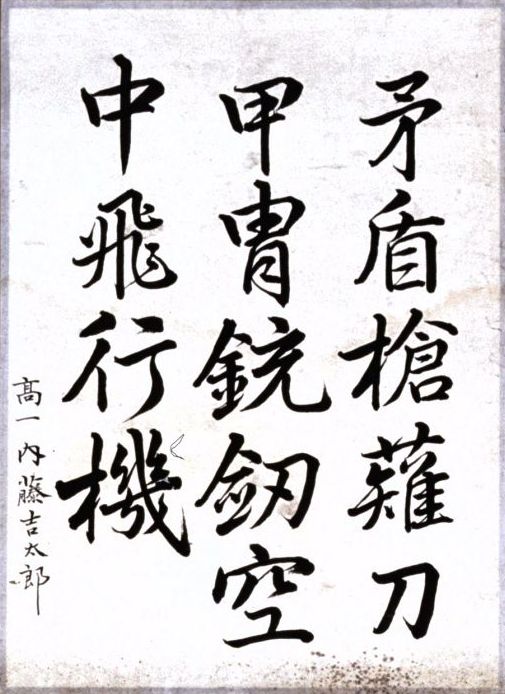 矛盾槍薙刀
甲冑銃劔空
中飛行機
高一内藤吉太郎